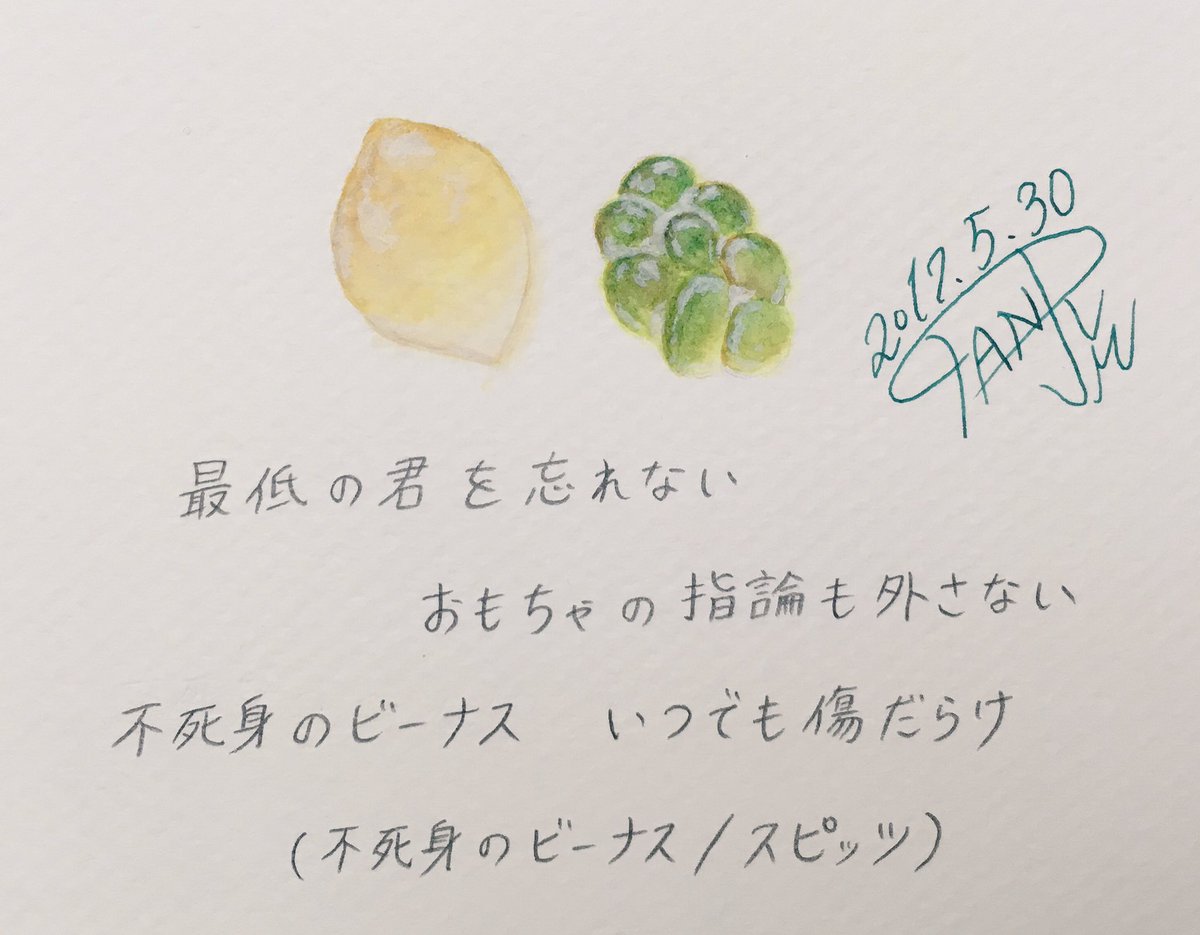 2017.5.30
最低の君を忘れない
おもちゃの指論も外さない
不死身のビーナス いつでも傷だらけ
(不死身のビーナス/スピッツ)